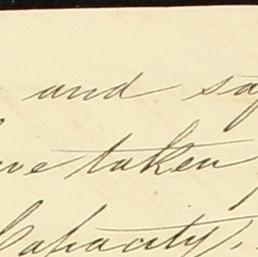 and sa
ve taken
Capacity,